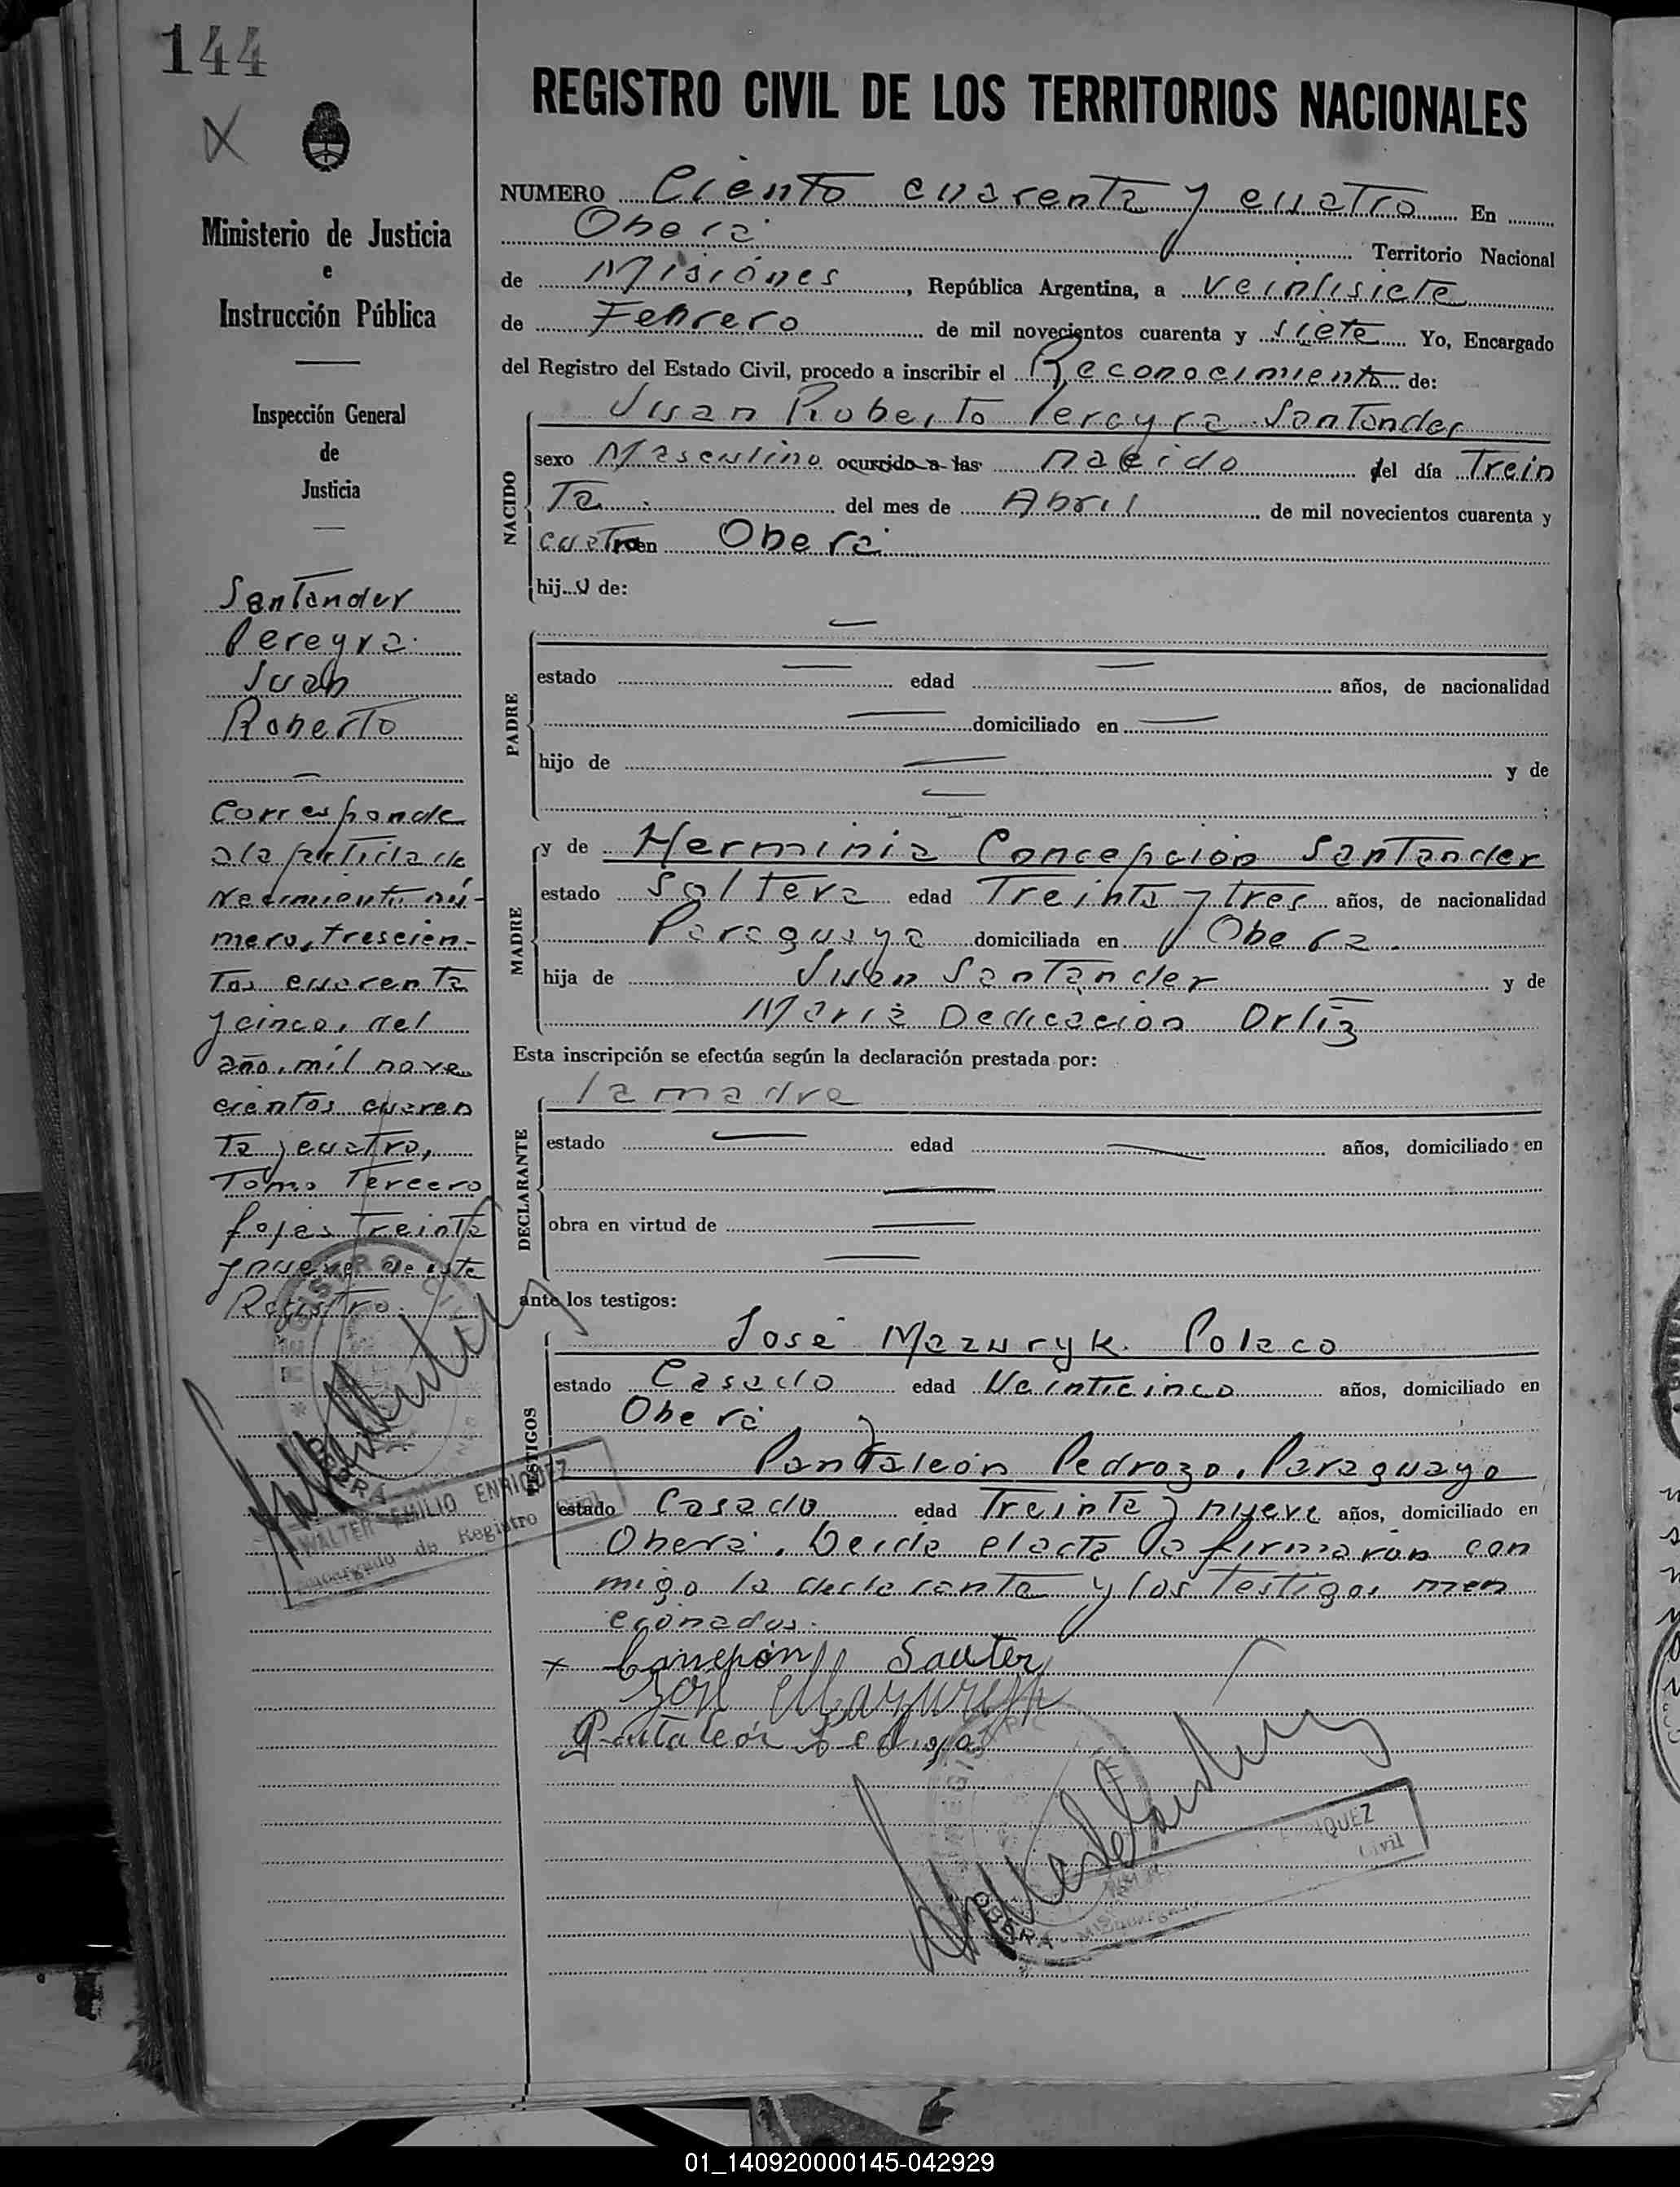 144
REGISTRO CIVIL DE LOS TERRITORIOS NACIONALES
Ministerio de Justicia
e
Instrucción Pública
Inspección General
de
Justicia
Santander
Pereyra
Juan
Roberto
Corresponde
a la partida de
Nacimiento nú-
mero, trescien-
tos cuarenta
y cinco, del
año, mil nove
cientos cuaren
ta y cuatro,
Tomo Tercero
fojas treinta
y nueve de este
Registro.
WALTER EMILIO ENRIQUEZ
Encargado de Registro Civil
NUMERO Ciento cuarenta y cuatro En
Oberá Territorio Nacional
de Misiónes, República Argentina, a veintisiete
de Febrero de mil novecientos cuarenta y siete Yo, Encargado
del Registro del Estado Civil, procedo a inscribir el Reconocimiento de:
Juan Roberto Pereyra Santander
NACIDO
sexo Masculino ocurrido a las nacido del día Trein
ta del mes de Abril de mil novecientos cuarenta y
cuatro en Oberá
hijo de:
PADRE
estado edad años, de nacionalidad
domiciliado en
hijo de y de
MADRE
y de Herminia Concepción Santander
estado Soltera edad Treinta y tres años, de nacionalidad
Paraguaya domiciliada en Oberá.
hija de Juan Santander y de
María Dedicación Ortíz
Esta inscripción se efectúa según la declaración prestada por:
la madre
DECLARANTE
estado edad años, domiciliado en
obra en virtud de
ante los testigos:
TESTIGOS
José Mazuryk. Polaco
estado Casado edad Veinticinco años, domiciliado en
Oberá
Pantaleón Pedrozo, Paraguayo
estado Casado edad Treinta y nueve años, domiciliado en
Oberá. Leida el acta la firmarón con
migo la declaranta y los testigos men
cionados.
x Consepón Santer
José Mazuryk
Pantaleón Pedroso
REGISTRO CIVIL
OBERA
ENRIQUEZ
Civil
01_140920000145-042929